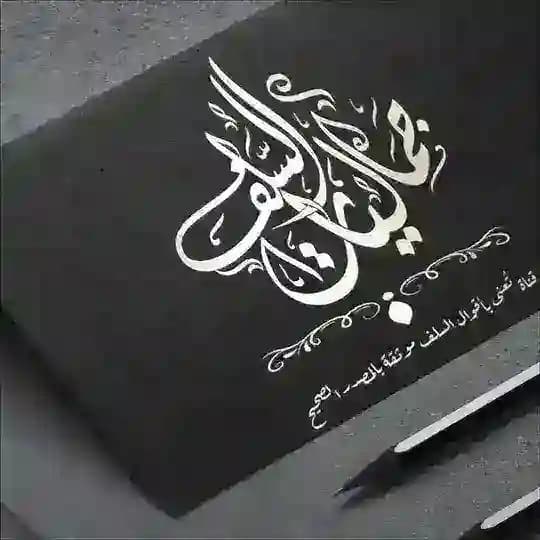 جماليات السلف
قناة تُعنى بأقوال السلف موثقة بالمصدر الصحيح